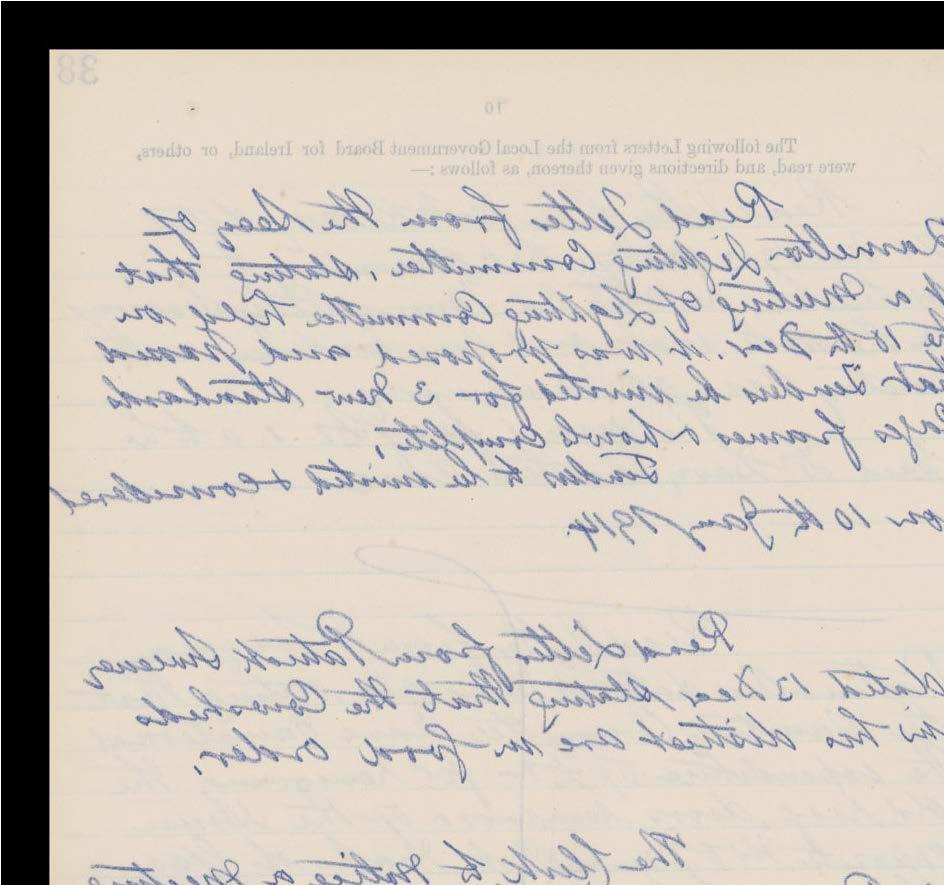 38
10
The following Letters from the Local Government Board for Ireland, or others,
were read, and directions given thereon, as follows :—
Read Letter from the Secy of
Ramelton Lighting Committee, stating that
at a Meeting of Lighting Committee held on
10th Dec. it was proposed and passed
that Tenders be invited for 3 New Standards
frames & bowls complete,
Tenders to be invited & considered
on 10th Jany 1914.
Read Letter from Patrick Sweeney
dated 13 Dec stating that the Cowsheds
in his district are in good order.
The Clerk to notice a meeting